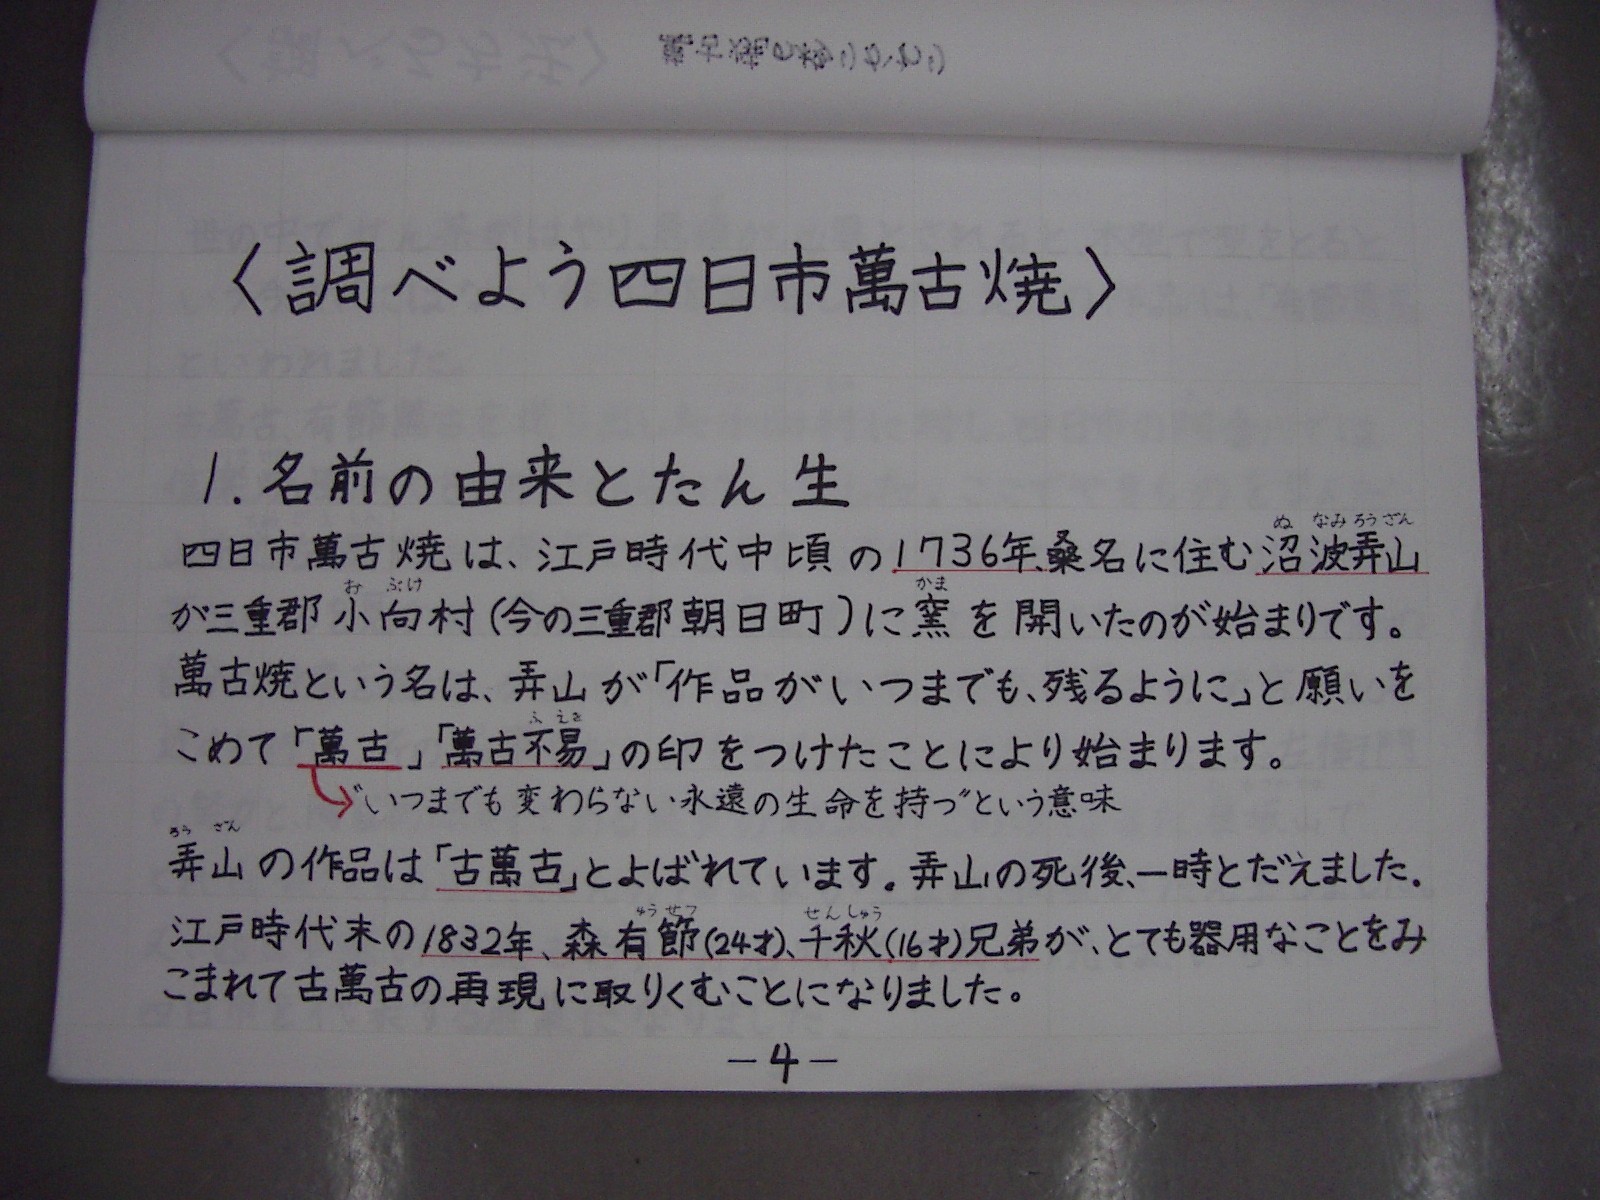 〈調べよう四日市萬古焼〉
1.名前の由来とたん生
ぬ なみ ろう ざん
四日市萬古焼は、江戸時代中頃の1736年、桑名に住む沼波弄山
お ぶけ かま
が三重郡小向村(今の三重郡朝日町)に窯を開いたのが始まりです。
萬古焼という名は、弄山が「作品がいつまでも、残るように」と願いを
ふ えき
こめて「萬古」「萬古不易」の印をつけたことにより始まります。
"いつまでも変わらない永遠の生命を持つ"という意味
ろう ざん
弄山の作品は「古萬古」とよばれています。弄山の死後、一時とだえました。
ゆう せつ せん しゅう
江戸時代末の1832年、森有節(24才)、千秋(16才)兄弟が、とても器用なことをみ
こまれて古萬古の再現に取りくむことになりました。
-4-